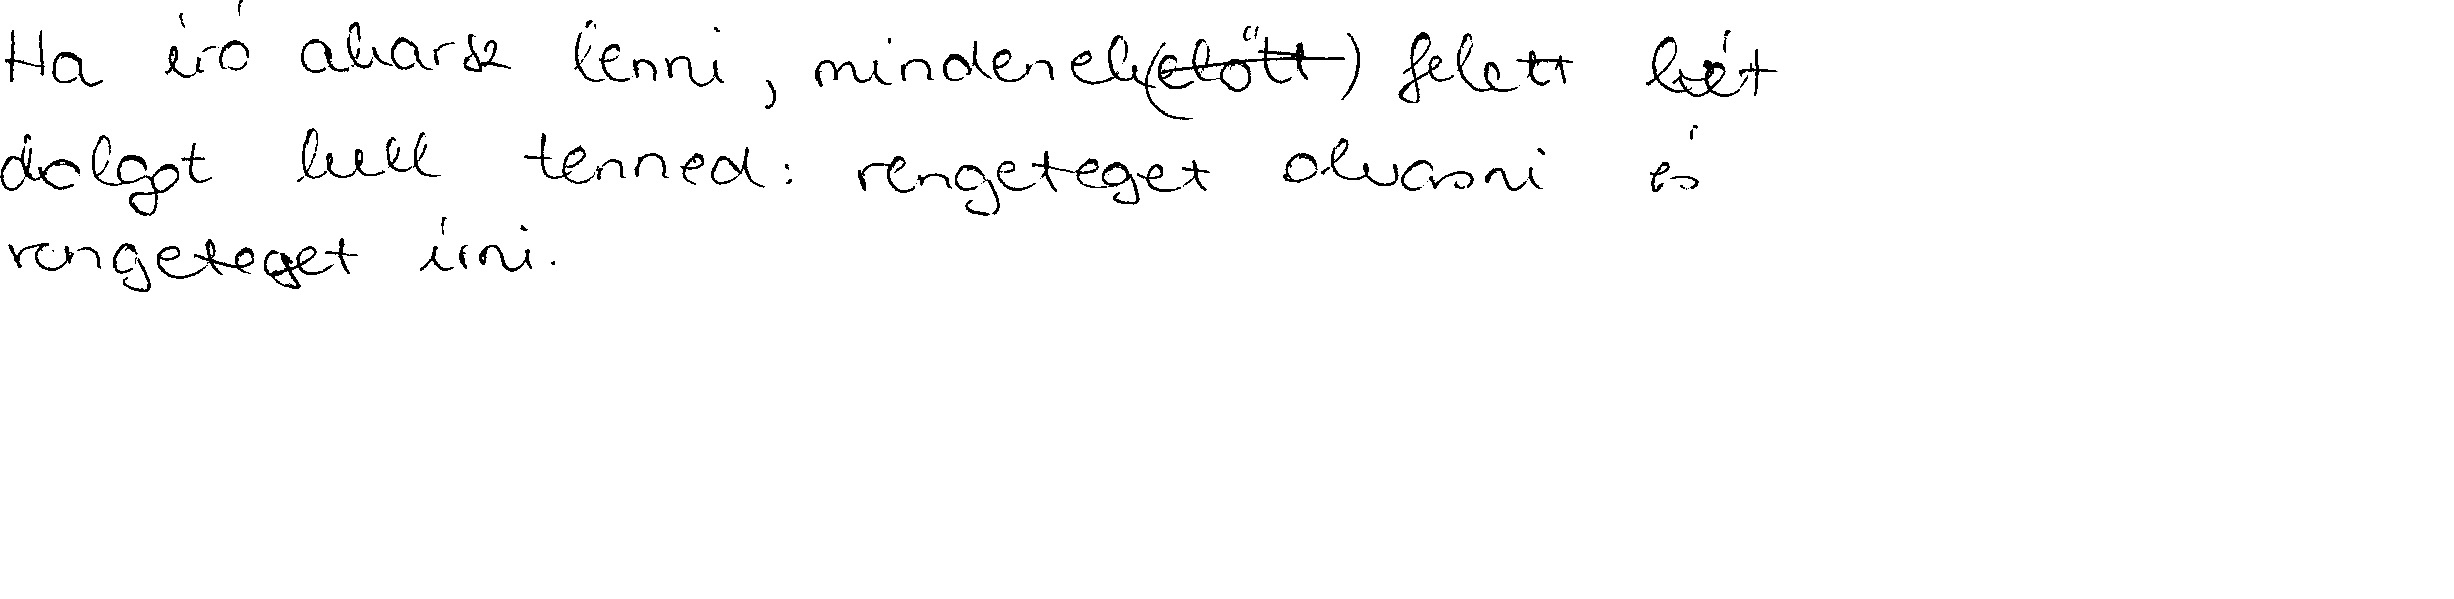 Ha író akarsz lenni, mindenek(előtt) felett két
dolgot kell tenned: rengeteget olvasni és
rengeteget írni.